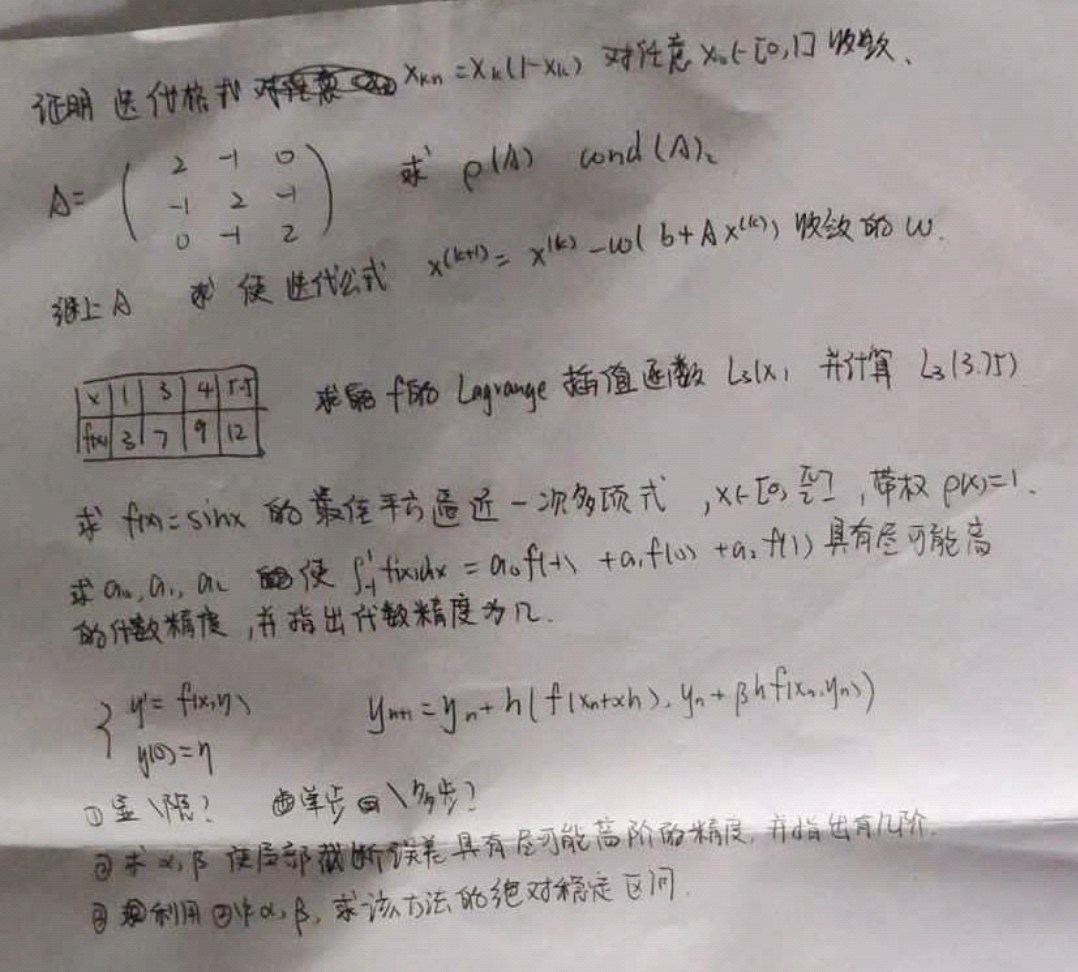 证明 迭代格式 x_{k+1} = x_k(1-x_k) 对任意 x_0∈[0,1] 收敛、
A= ( 2 -1 0 求 ρ(A) cond(A)_2
-1 2 -1
0 -1 2 )
继上A 求使迭代公式 x^{(k+1)} = x^{(k)} - ω( b + A x^{(k)}) 收敛的 ω.
x 1 3 4 5.5 求 f的 Lagrange 插值函数 L_3(x) 并计算 L_3(3.75)
f(x) 3 7 9 12
求 f(x)=sinx 的最佳平方逼近一次多项式 , x∈[0, π/2] , 带权 ρ(x)=1.
求 a_0, a_1, a_2 使 ∫_{-1}^{1} f(x)dx = a_0f(-1) + a_1f(0) + a_2f(1) 具有尽可能高
的代数精度 , 并指出代数精度为几.
{ y' = f(x,y) y_{n+1} = y_n + h( f(x_n+αh), y_n + βhf(x_n,y_n))
y(0)=η
① 显\隐? 单步\多步?
② 求 α, β 使局部截断误差具有尽可能高阶的精度, 并指出有几阶.
③ 利用②中α, β, 求该方法的绝对稳定区间.